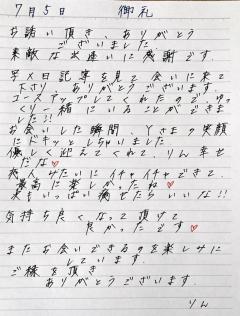 7月5日 御礼
お誘い頂き、ありがとう
ございました
素敵な出逢いに感謝です。
写メ日記等を見て会いに来て
下さり、ありがとうございます。
コースアップしてくれたので ゆ
くり一緒にいることができま
した!!
お会いした瞬間、Yさまの笑顔
にドキッとしちゃいました
優しく迎えてくれて、りん幸せ
だな♡
恋人みたいにイチャイチャできて、
最高に楽しかったね♡
気持ち良くなって頂けて
良かったです♡
またお会いできるのを楽しみに
しています。
ご縁を頂き
ありがとうございます。
りん